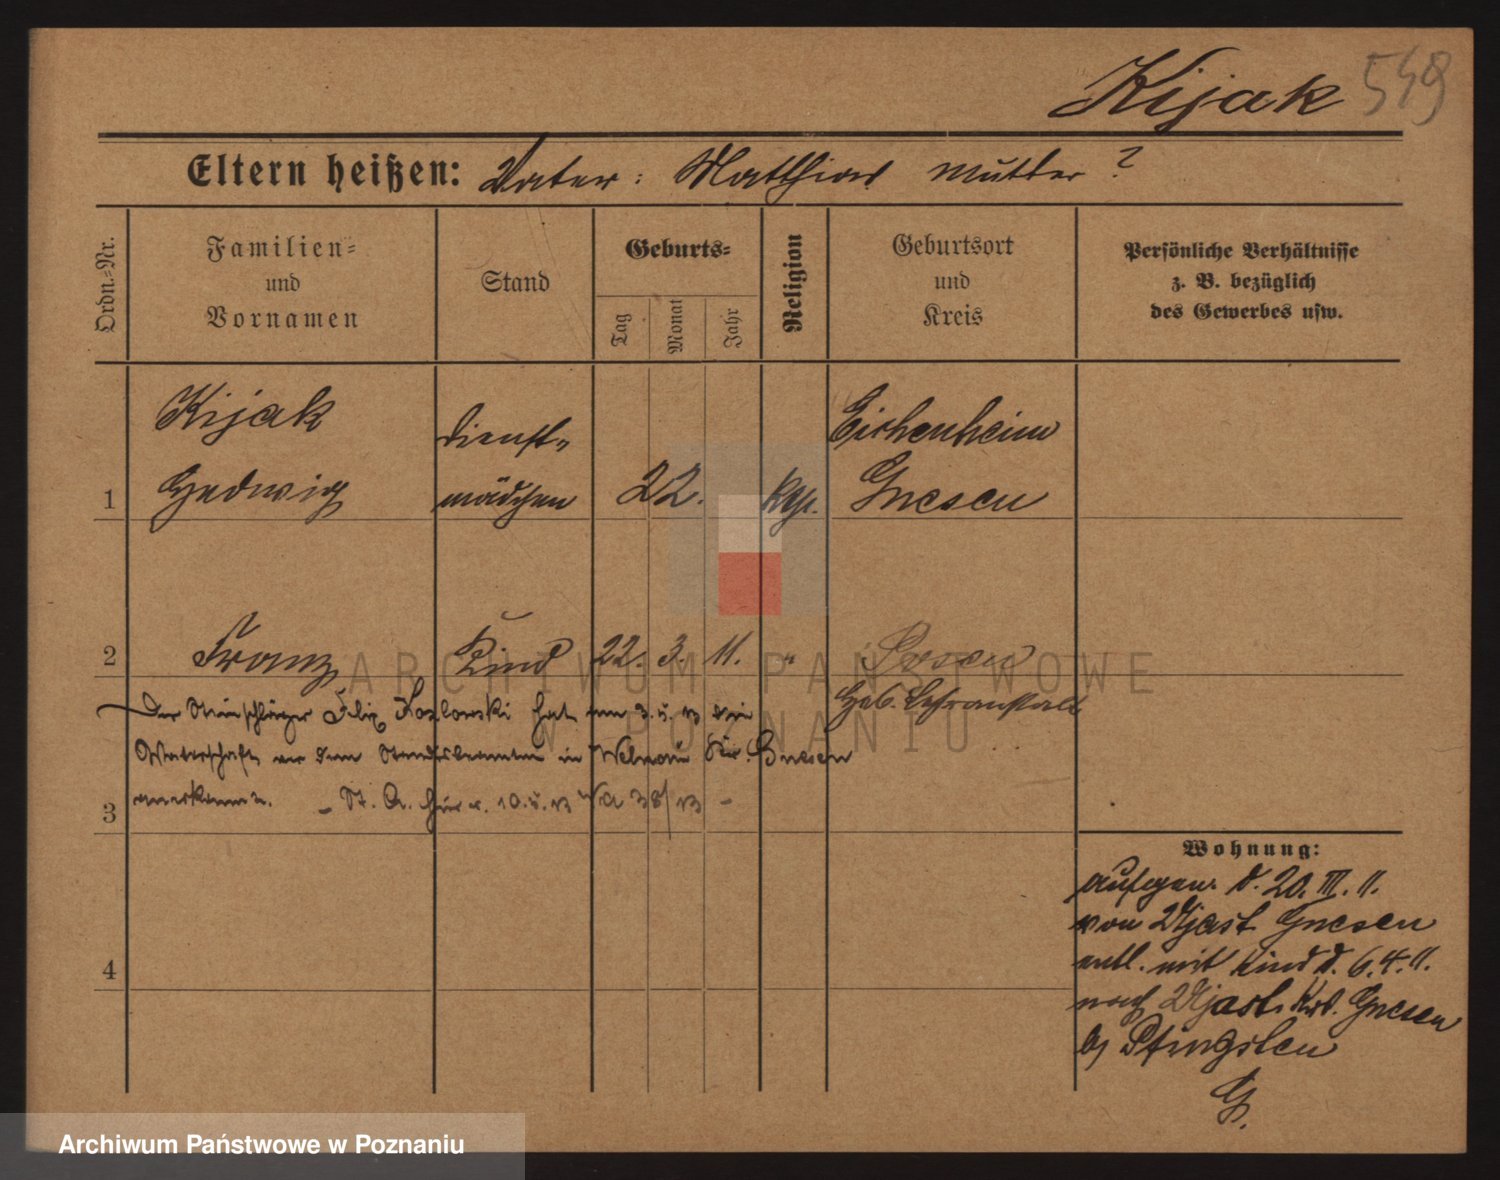 Kijak 549
Eltern heißen: Vater: Matthias Mutter ?
Ordn.=Nr.
Familien=
und
Vornamen
Stand
Geburts=
Tag
Monat
Jahr
Religion
Geburtsort
und
Kreis
Persönliche Verhältnisse
z. B. bezüglich
des Gewerbes usw.
1
Kijak
Hedwig
Dienst=
mädchen
22.
kgl.
Eichenheim
Gnesen
2
Franz
Kind
22. 3. 11.
"
Posen
Heb. Lehranstalt
Der Steinschläger Felix Kozlowski hat am 3.5.13 die
Vaterschaft vor dem Standesbeamten in Welnau Kr. Gnesen
anerkannt. – St. A. hier v. 10.5.13 38/13 –
3
4
Wohnung:
aufgen. d. 20. III. 11.
von Ujast Gnesen
entl. mit Kind d. 6.4.11.
nach Ujast Krs. Gnesen
b/ Pfingsten
G.
ARCHIWUM PAŃSTWOWE
W POZNANIU
Archiwum Państwowe w Poznaniu